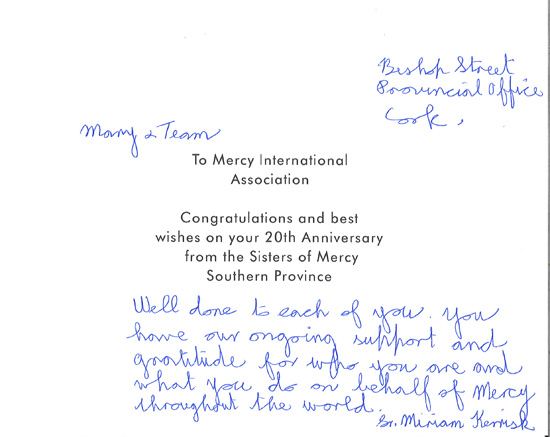 Bishop Street
Provincial Office
Cork,
Mary & Team
To Mercy International
Association
Congratulations and best
wishes on your 20th Anniversary
from the Sisters of Mercy
Southern Province
Well done to each of you. You
have our ongoing support and
gratitude for who you are and
what you do on behalf of Mercy
throughout the world.
Sr. Miriam Kerrisk